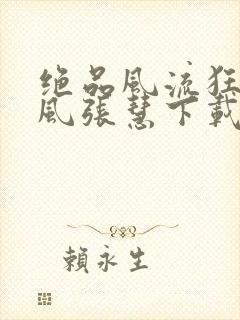 绝品風流狂
風張慧下載
賴永生